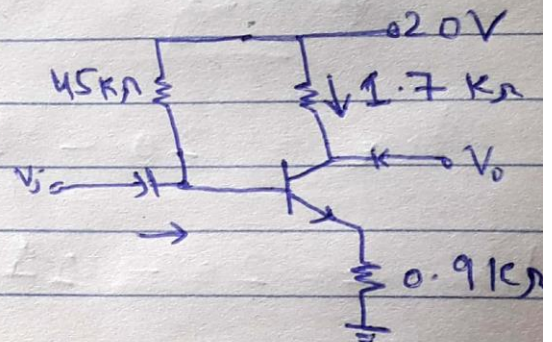 20V
45KΩ
1.7 KΩ
Vi
Vo
0.9KΩ